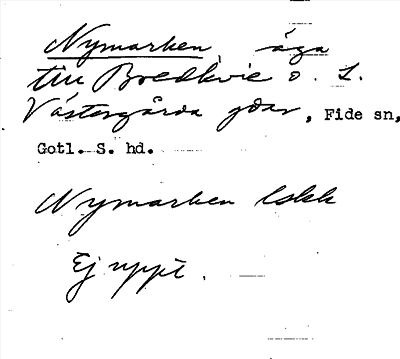 Nymarken äga
till Bredkvie o. L.
Västergårda gdar, Fide sn,
Gotl. S. hd.
Nymarken lskk
Ej uppt.